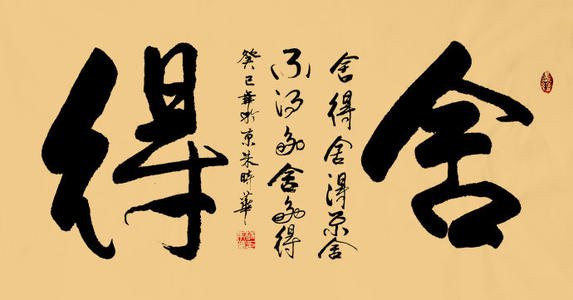 舍
舍得舍得不舍
不得能舍能得
癸巳年於京朱時華
得